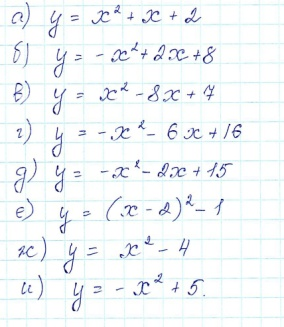 а) y = x² + x + 2
б) y = -x² + 2x + 8
в) y = x² - 8x + 7
г) y = -x² - 6x + 16
д) y = -x² - 2x + 15
е) y = (x - 2)² - 1
ж) y = x² - 4
и) y = -x² + 5.